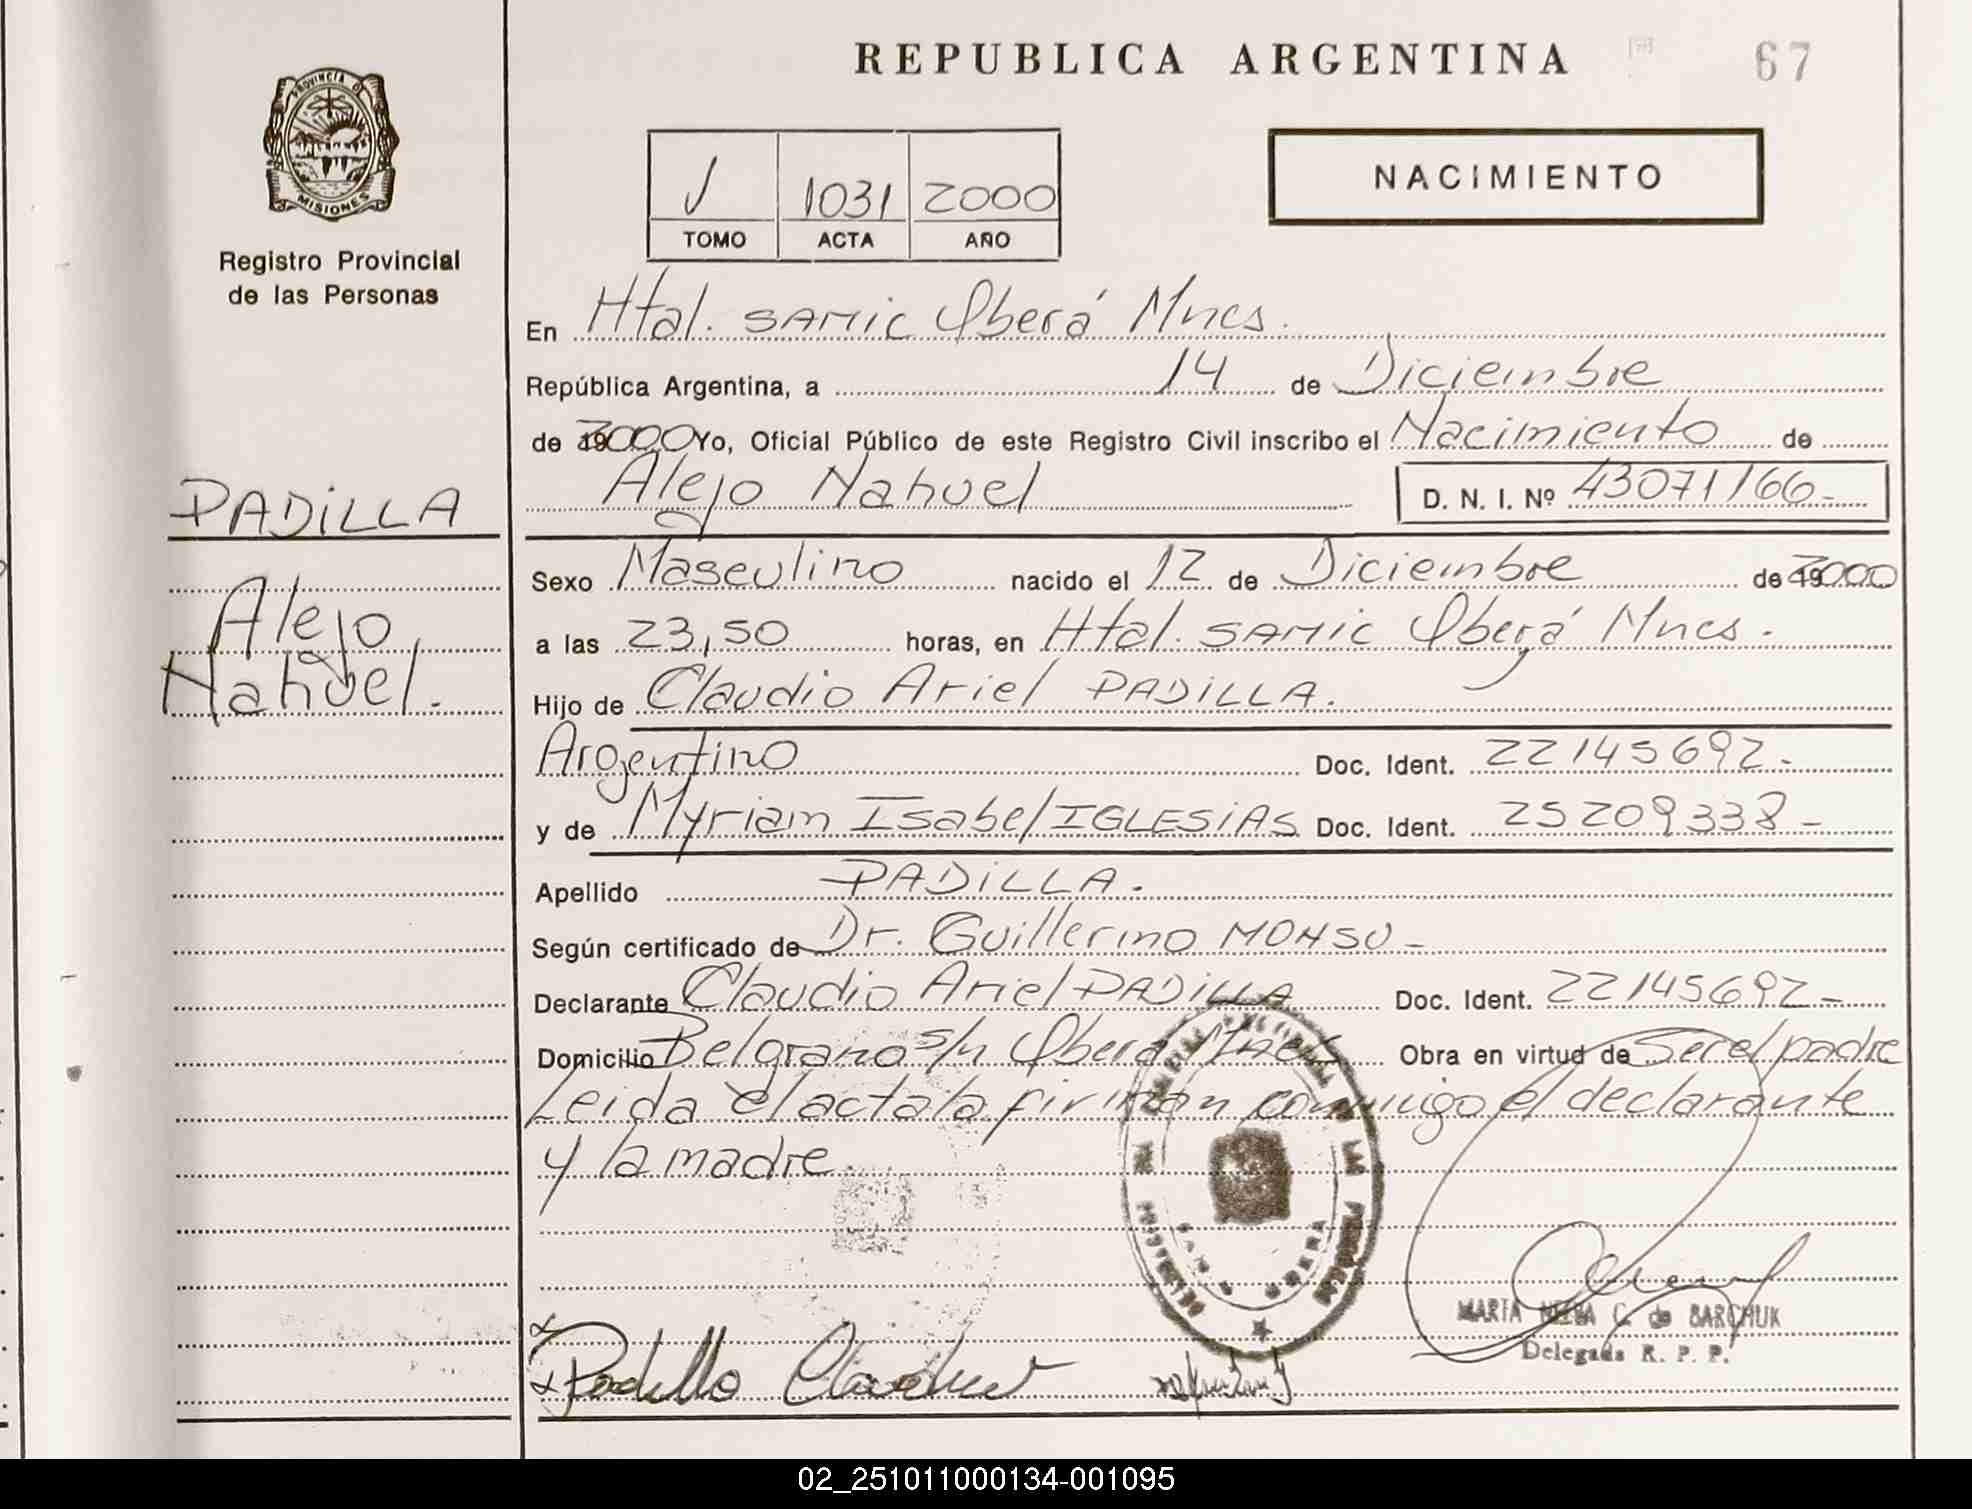 REPUBLICA ARGENTINA
67
PROVINCIA DE
MISIONES
Registro Provincial
de las Personas
NACIMIENTO
1031 2000
TOMO ACTA AÑO
En Htal. SAMIC Oberá Mnes.
República Argentina, a 14 de Diciembre
de 2000 Yo, Oficial Público de este Registro Civil inscribo el Nacimiento de
Alejo Nahuel D. N. I. Nº 43071166-
PADILLA
Alejo
Nahuel.
Sexo Masculino nacido el 12 de Diciembre de 2000
a las 23,50 horas, en Htal. SAMIC Oberá Mnes.
Hijo de Claudio Ariel PADILLA.
Argentino Doc. Ident. 22145692-
y de Myriam Isabel IGLESIAS Doc. Ident. 25209338-
Apellido PADILLA.
Según certificado de Dr. Guillermo MONSU-
Declarante Claudio Ariel PADILLA Doc. Ident. 22145692-
Domicilio Belgrano s/n Oberá Mnes Obra en virtud de Ser el padre
Leida el acta la firman conmigo el declarante
y la madre.
MARTA C. de BARCHUK
Delegada R. P. P.
Padilla Claudio
02_251011000134-001095